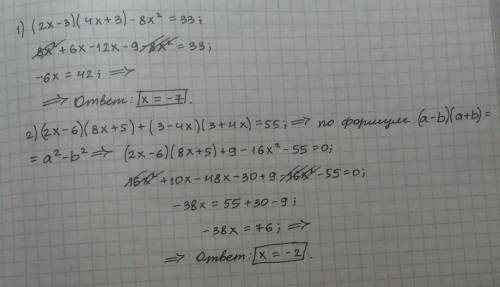 1) (2x-3)(4x+3)-8x²=33;
8x²+6x-12x-9-8x²=33;
-6x=42; ⇒
⇒ Ответ: x=-7.
2) (2x-6)(8x+5)+(3-4x)(3+4x)=55; ⇒ по формуле (a-b)(a+b)=
=a²-b² ⇒ (2x-6)(8x+5)+9-16x²-55=0;
16x²+10x-48x-30+9-16x²-55=0;
-38x=55+30-9;
-38x=76; ⇒
⇒ Ответ: x=-2.